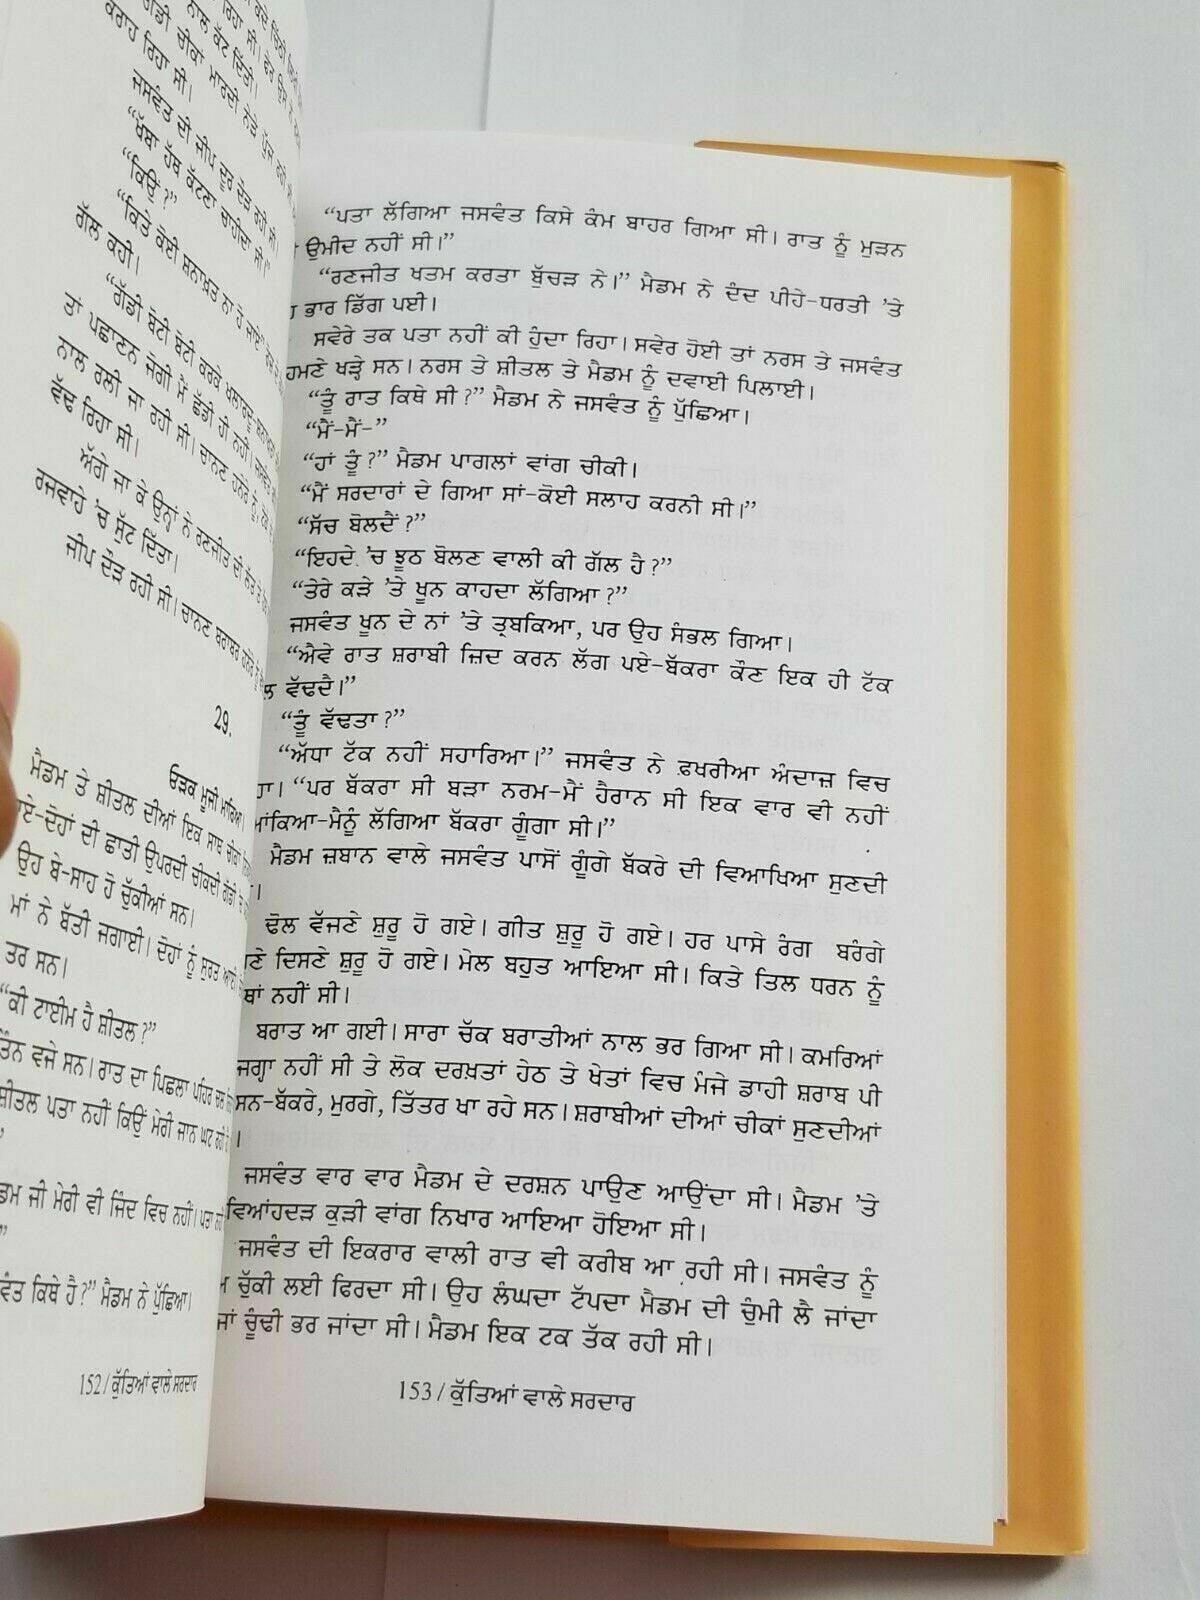 ਨਾਲ ਕੱਟ ਦਿੱਤੀ।
ਗੱਡੀ ਚੀਕਾਂ ਮਾਰਦੀ ਨੇੜੇ ਪੁੱਜ ਰਹੀ ਸੀ
ਕਰਾਹ ਰਿਹਾ ਸੀ।
ਜਸਵੰਤ ਦੀ ਜੀਪ ਦੂਰ ਦੌੜ ਰਹੀ ਸੀ।
“ਖੱਬਾ ਹੱਥ ਕੱਟਣਾ ਚਾਹੀਦਾ ਸੀ।”
“ਕਿਉਂ ?”
“ਕਿਤੇ ਕੋਈ ਸ਼ਨਾਖ਼ਤ ਨਾ ਹੋ ਜਾਏ”
ਗੱਲ ਕਹੀ।
“ਗੱਡੀ ਬੋਟੀ ਬੋਟੀ ਕਰਕੇ ਖਲਾਰਦੂ-ਸ਼ਨਾਖ਼ਤ
ਤਾਂ ਪਛਾਣਨ ਜੋਗੀ ਮੈਂ ਛੱਡੀ ਹੀ ਨਹੀਂ। ਜਸਵੰਤ
ਨਾਲ ਰਲੀ ਜਾ ਰਹੀ ਸੀ। ਚਾਨਣ ਹਨੇਰੇ ਨੂੰ
ਵੱਢ ਰਿਹਾ ਸੀ।
ਅੱਗੇ ਜਾ ਕੇ ਉਨ੍ਹਾਂ ਨੇ ਰਣਜੀਤ ਦੀ ਲੱਤ ਤੇ
ਰਜਵਾਹੇ 'ਚ ਸੁੱਟ ਦਿੱਤਾ।
ਜੀਪ ਦੌੜ ਰਹੀ ਸੀ। ਚਾਨਣ ਬਰਾਬਰ ਹਨੇਰੇ ਨੂੰ
29.
ਓੜਕ ਮੂਜੀ ਮਾਰਿਆ।
ਮੈਡਮ ਤੇ ਸ਼ੀਤਲ ਦੀਆਂ ਇਕ ਸਾਥ ਚੀਕਾਂ
ਦੋਹਾਂ ਦੀ ਛਾਤੀ ਉਪਰਦੀ ਚੀਕਦੀ ਗੱਡੀ
ਉਹ ਬੇ-ਸਾਹ ਹੋ ਚੁੱਕੀਆਂ ਸਨ।
ਮਾਂ ਨੇ ਬੱਤੀ ਜਗਾਈ। ਦੋਹਾਂ ਨੂੰ ਸੁਰਤ ਆਈ
ਤਰ ਸਨ।
“ਕੀ ਟਾਈਮ ਹੈ ਸ਼ੀਤਲ ?”
ਤਿੰਨ ਵਜੇ ਸਨ। ਰਾਤ ਦਾ ਪਿਛਲਾ ਪਹਿਰ ਚਲ
ਸ਼ੀਤਲ ਪਤਾ ਨਹੀਂ ਕਿਉਂ ਮੇਰੀ ਜਾਨ ਘਟ ਰਹੀ
ਡਮ ਜੀ ਮੇਰੀ ਵੀ ਜਿੰਦ ਵਿਚ ਨਹੀਂ। ਪਤਾ ਨਹੀਂ
ਵੰਤ ਕਿਥੇ ਹੈ?” ਮੈਡਮ ਨੇ ਪੁੱਛਿਆ।
152/ਕੁੱਤਿਆਂ ਵਾਲੇ ਸਰਦਾਰ
“ਪਤਾ ਲੱਗਿਆ ਜਸਵੰਤ ਕਿਸੇ ਕੰਮ ਬਾਹਰ ਗਿਆ ਸੀ। ਰਾਤ ਨੂੰ ਮੁੜਨ
ੀ ਉਮੀਦ ਨਹੀਂ ਸੀ।”
“ਰਣਜੀਤ ਖਤਮ ਕਰਤਾ ਬੁੱਚੜ ਨੇ।” ਮੈਡਮ ਨੇ ਦੰਦ ਪੀਹੇ-ਧਰਤੀ 'ਤੇ
ਭਾਰ ਡਿੱਗ ਪਈ।
ਸਵੇਰੇ ਤਕ ਪਤਾ ਨਹੀਂ ਕੀ ਹੁੰਦਾ ਰਿਹਾ। ਸਵੇਰ ਹੋਈ ਤਾਂ ਨਰਸ ਤੇ ਜਸਵੰਤ
ਹਮਣੇ ਖੜ੍ਹੇ ਸਨ। ਨਰਸ ਤੇ ਸ਼ੀਤਲ ਤੇ ਮੈਡਮ ਨੂੰ ਦਵਾਈ ਪਿਲਾਈ।
“ਤੂੰ ਰਾਤ ਕਿਥੇ ਸੀ ?” ਮੈਡਮ ਨੇ ਜਸਵੰਤ ਨੂੰ ਪੁੱਛਿਆ।
“ਮੈਂ-ਮੈਂ-”
“ਹਾਂ ਤੂੰ ?” ਮੈਡਮ ਪਾਗਲਾਂ ਵਾਂਗ ਚੀਕੀ।
“ਮੈਂ ਸਰਦਾਰਾਂ ਦੇ ਗਿਆ ਸਾਂ-ਕੋਈ ਸਲਾਹ ਕਰਨੀ ਸੀ।”
“ਸੱਚ ਬੋਲਦੈਂ ?”
“ਇਹਦੇ 'ਚ ਝੂਠ ਬੋਲਣ ਵਾਲੀ ਕੀ ਗੱਲ ਹੈ ?”
“ਤੇਰੇ ਕੜੇ 'ਤੇ ਖੂਨ ਕਾਹਦਾ ਲੱਗਿਆ ?”
ਜਸਵੰਤ ਖੂਨ ਦੇ ਨਾਂ 'ਤੇ ਤ੍ਰਬਕਿਆ, ਪਰ ਉਹ ਸੰਭਲ ਗਿਆ।
“ਐਵੇ ਰਾਤ ਸ਼ਰਾਬੀ ਜ਼ਿਦ ਕਰਨ ਲੱਗ ਪਏ-ਬੱਕਰਾ ਕੌਣ ਇਕ ਹੀ ਟੱਕ
ਲ ਵੱਢਦੈ।”
“ਤੂੰ ਵੱਢਤਾ ?”
“ਅੱਧਾ ਟੱਕ ਨਹੀਂ ਸਹਾਰਿਆ।” ਜਸਵੰਤ ਨੇ ਫ਼ਖਰੀਆ ਅੰਦਾਜ਼ ਵਿਚ
ਹਾ। “ਪਰ ਬੱਕਰਾ ਸੀ ਬੜਾ ਨਰਮ-ਮੈਂ ਹੈਰਾਨ ਸੀ ਇਕ ਵਾਰ ਵੀ ਨਹੀਂ
ਮਾਂਕਿਆ-ਮੈਨੂੰ ਲੱਗਿਆ ਬੱਕਰਾ ਗੂੰਗਾ ਸੀ।”
ਮੈਡਮ ਜ਼ਬਾਨ ਵਾਲੇ ਜਸਵੰਤ ਪਾਸੋਂ ਗੂੰਗੇ ਬੱਕਰੇ ਦੀ ਵਿਆਖਿਆ ਸੁਣਦੀ
।
ਢੋਲ ਵੱਜਣੇ ਸ਼ੁਰੂ ਹੋ ਗਏ। ਗੀਤ ਸ਼ੁਰੂ ਹੋ ਗਏ। ਹਰ ਪਾਸੇ ਰੰਗ ਬਰੰਗੇ
ਣੇ ਦਿਸਣੇ ਸ਼ੁਰੂ ਹੋ ਗਏ। ਮੇਲ ਬਹੁਤ ਆਇਆ ਸੀ। ਕਿਤੇ ਤਿਲ ਧਰਨ ਨੂੰ
ਥਾਂ ਨਹੀਂ ਸੀ।
ਬਰਾਤ ਆ ਗਈ। ਸਾਰਾ ਚੱਕ ਬਰਾਤੀਆਂ ਨਾਲ ਭਰ ਗਿਆ ਸੀ। ਕਮਰਿਆਂ
ਜਗ੍ਹਾ ਨਹੀਂ ਸੀ ਤੇ ਲੋਕ ਦਰਖ਼ਤਾਂ ਹੇਠ ਤੇ ਖੇਤਾਂ ਵਿਚ ਮੰਜੇ ਡਾਹੀ ਸ਼ਰਾਬ ਪੀ
ਸਨ-ਬੱਕਰੇ, ਮੁਰਗੇ, ਤਿੱਤਰ ਖਾ ਰਹੇ ਸਨ। ਸ਼ਰਾਬੀਆਂ ਦੀਆਂ ਚੀਕਾਂ ਸੁਣਦੀਆਂ
।
ਜਸਵੰਤ ਵਾਰ ਵਾਰ ਮੈਡਮ ਦੇ ਦਰਸ਼ਨ ਪਾਉਣ ਆਉਂਦਾ ਸੀ। ਮੈਡਮ 'ਤੇ
ਵਿਆਂਹਦੜ ਕੁੜੀ ਵਾਂਗ ਨਿਖਾਰ ਆਇਆ ਹੋਇਆ ਸੀ।
ਜਸਵੰਤ ਦੀ ਇਕਰਾਰ ਵਾਲੀ ਰਾਤ ਵੀ ਕਰੀਬ ਆ ਰਹੀ ਸੀ। ਜਸਵੰਤ ਨੂੰ
ਚੁੱਕੀ ਲਈ ਫਿਰਦਾ ਸੀ। ਉਹ ਲੰਘਦਾ ਟੱਪਦਾ ਮੈਡਮ ਦੀ ਚੁੰਮੀ ਲੈ ਜਾਂਦਾ
ਜਾਂ ਚੂੰਢੀ ਭਰ ਜਾਂਦਾ ਸੀ। ਮੈਡਮ ਇਕ ਟਕ ਤੱਕ ਰਹੀ ਸੀ।
153/ਕੁੱਤਿਆਂ ਵਾਲੇ ਸਰਦਾਰ